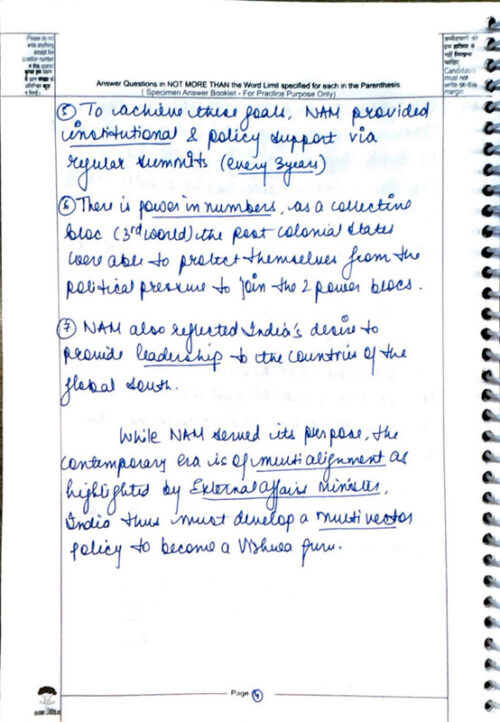 Please do not
write anything
except the
question number
in this space
Answer Questions in NOT MORE THAN the Word Limit specified for each in the Parenthesis
( Specimen Answer Booklet - For Practice Purpose Only)
Candidates
must not
write on this
margin
⑤ To achieve these goals, NAM provided
institutional & policy support via
regular summits (every 3 years)
⑥ There is power in numbers, as a collective
bloc (3rd world) the post colonial states
were able to protect themselves from the
political pressure to join the 2 power blocs.
⑦ NAM also reflected India's desire to
provide leadership to the countries of the
global south.
While NAM served its purpose, the
contemporary era is of multialignment as
highlighted by External Affairs Minister.
India thus must develop a multivector
policy to become a Vishwa guru.
Page 4